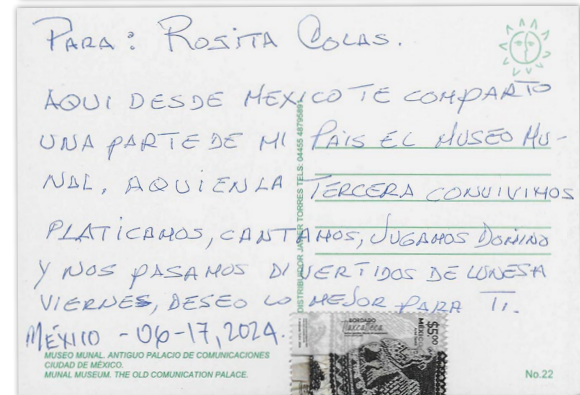 PARA: ROSITA COLAS.
AQUI DESDE MEXICO TE COMPARTO
UNA PARTE DE MI PAIS EL MUSEO MU-
NAL, AQUI EN LA TERCERA CONVIVIMOS
PLATICAMOS, CANTAMOS, JUGAMOS DOMINO
Y NOS PASAMOS DIVERTIDOS DE LUNES A
VIERNES, DESEO LO MEJOR PARA TI.
MÉXICO - 06-17, 2024.
DISTRIBUIDOR JAVIER TORRES TELS: 04455 48795891
BORDADO
$5.00
MÉXICO
MUSEO MUNAL. ANTIGUO PALACIO DE COMUNICACIONES
CIUDAD DE MÉXICO.
MUNAL MUSEUM. THE OLD COMUNICATION PALACE.
No.22